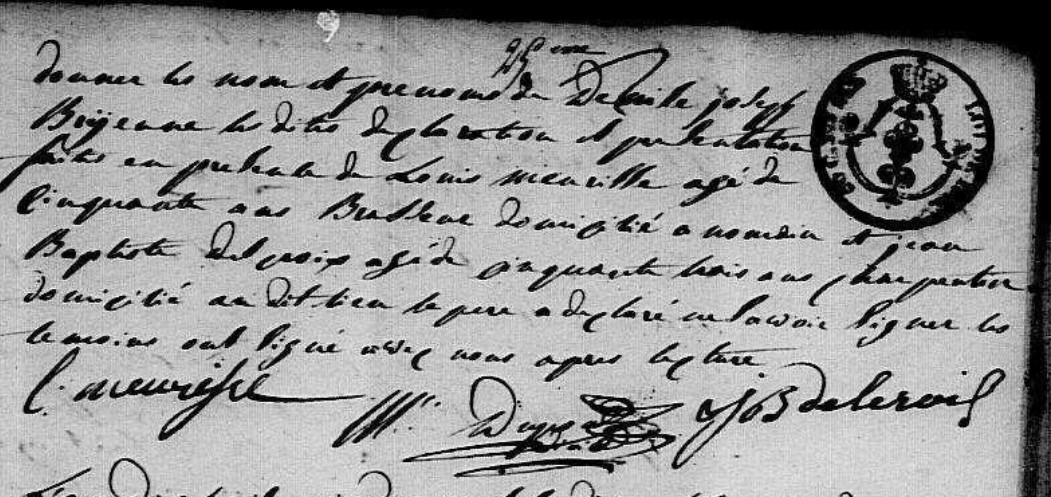 25eme
donner les nom et prenoms de Demile joseph
les dites declaration et presentation
faites en presence de Louis meurisse agé de
Cinquante ans Brasseur domicilié a nomain et jean
Baptiste Delcroix agé de cinquante trois ans charpentier
domicilié au dit lieu le pere a declaré ne savoir signer les
temoins ont signé avec nous apres lecture
L. meurisse
J B delcroix